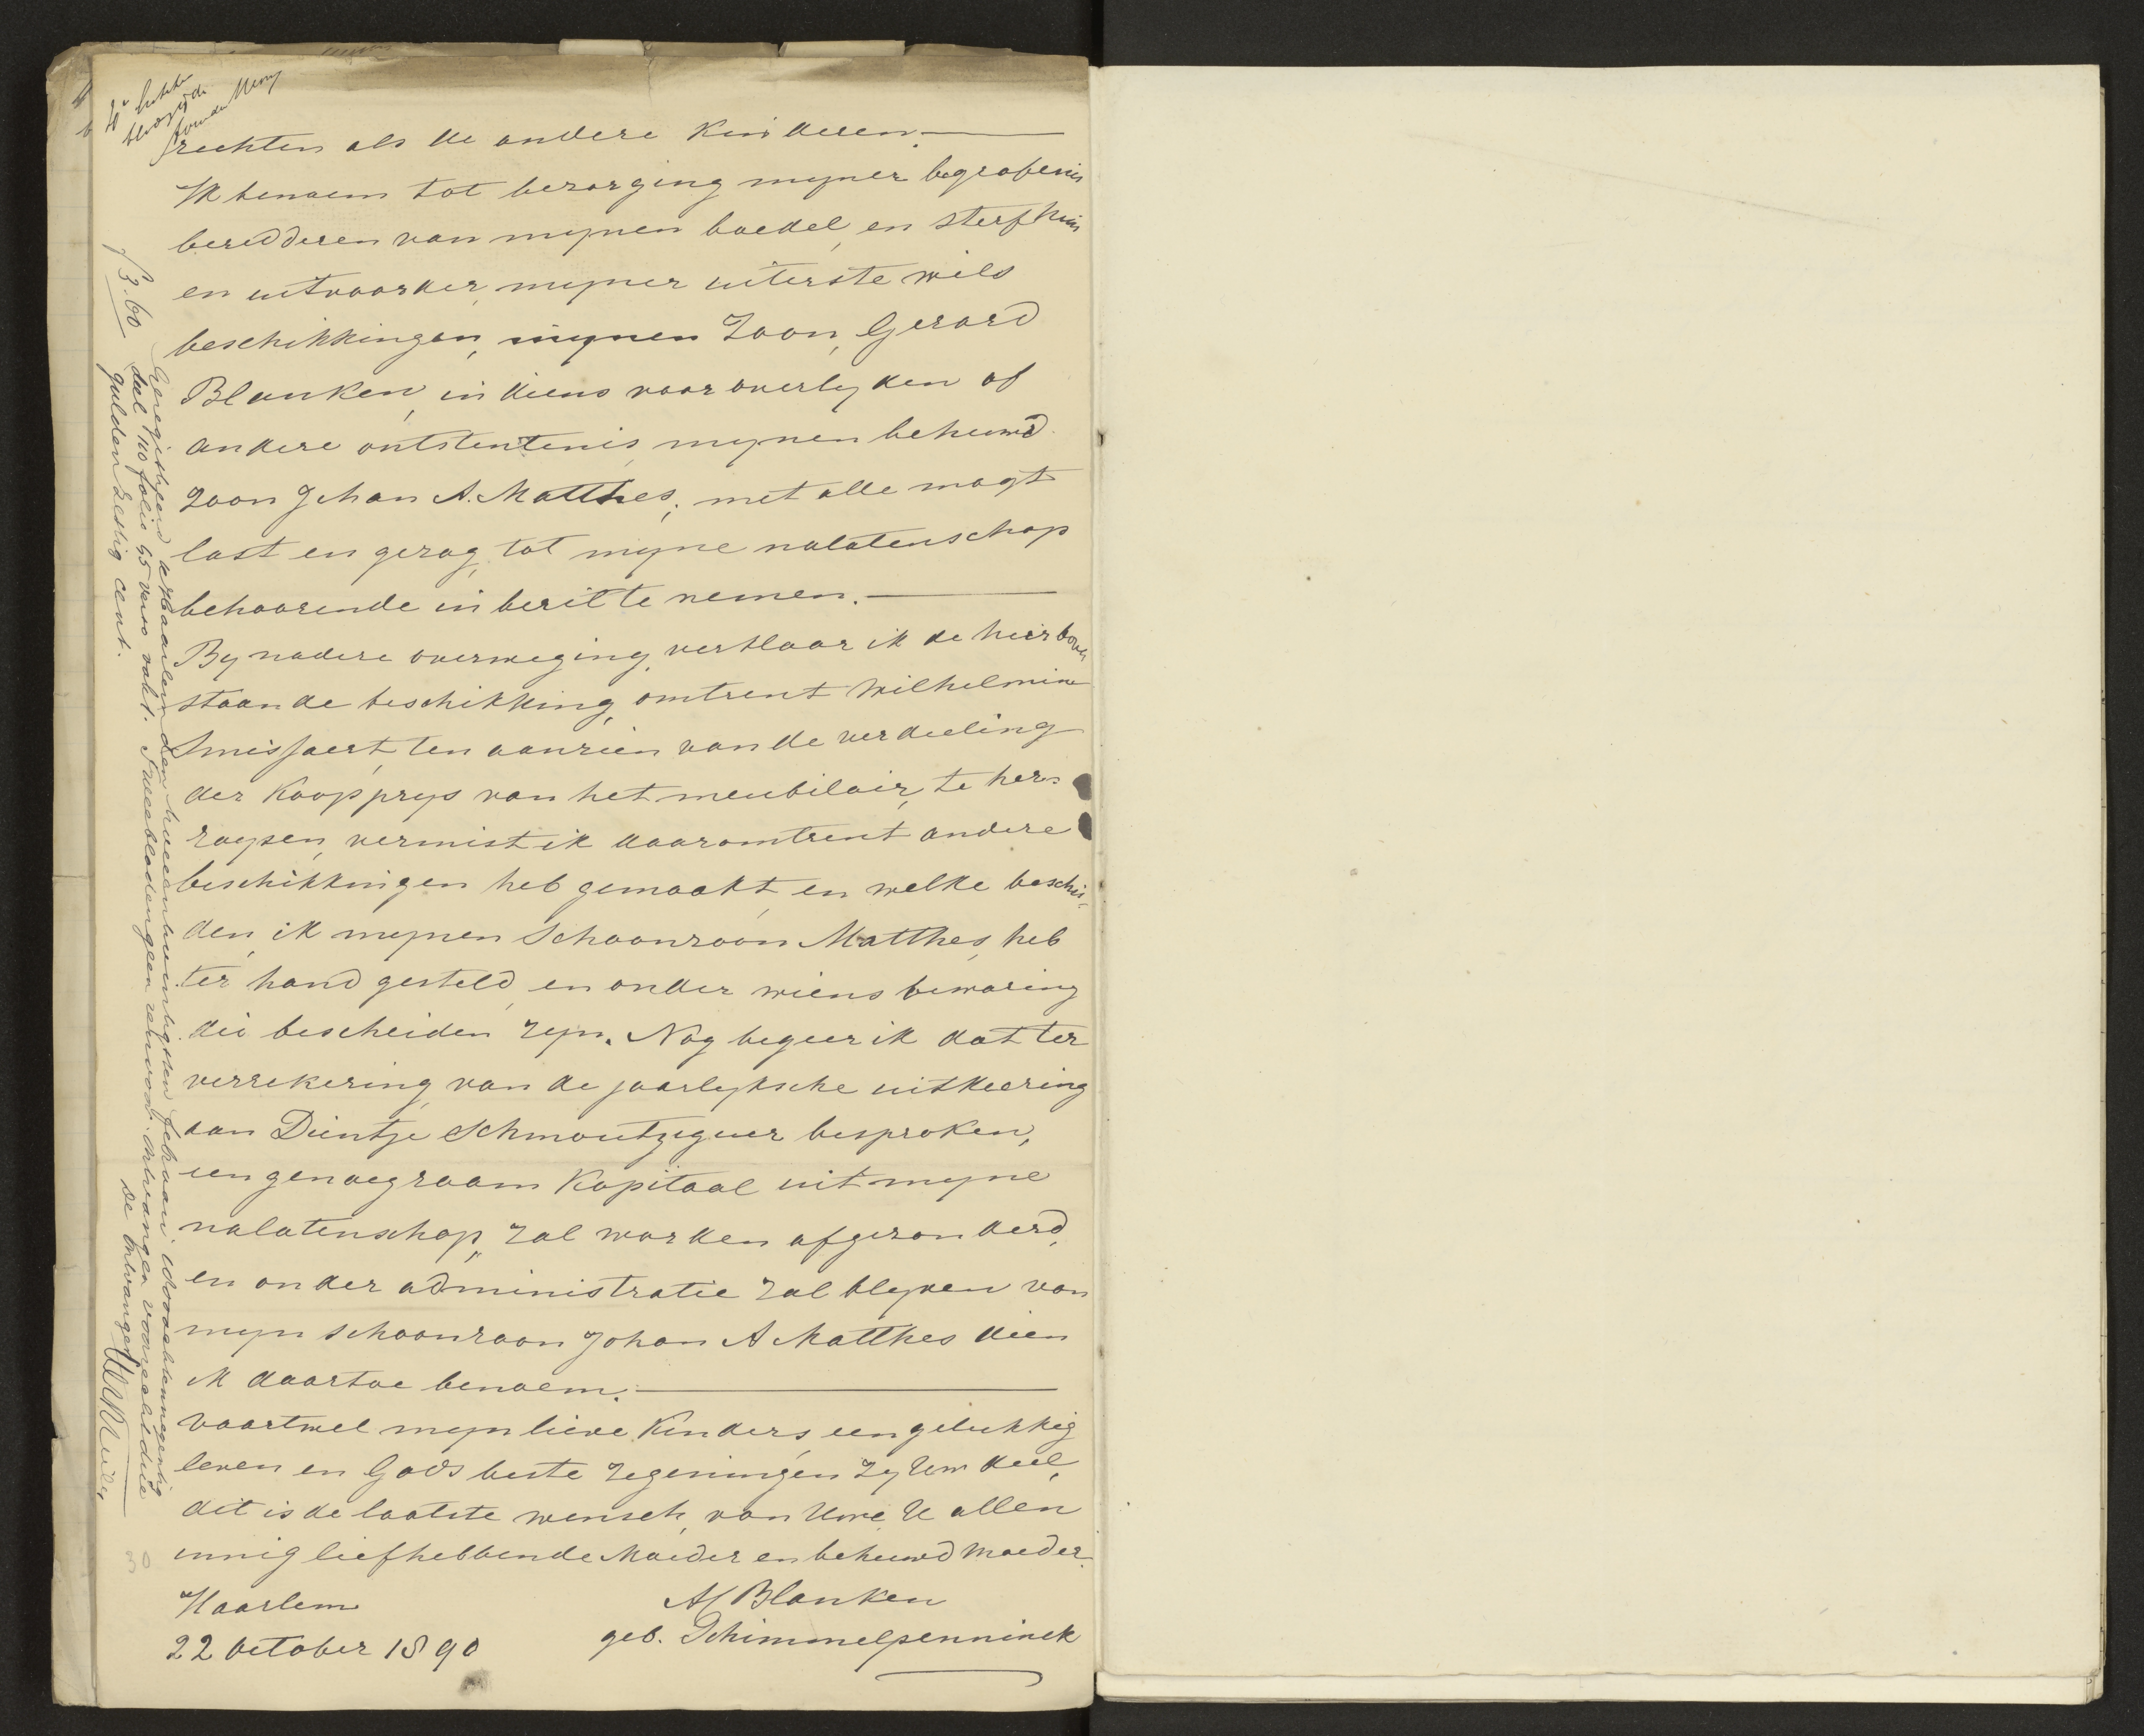 4e
rechten als de andere kinderen.
Ik benoem tot bezorging mijner begrafenis
beredderen van mijnen boedel, en sterfhuis
en uitvoorder, mijner uiterste wils
beschikkingen, mijnen Zoon, Gerard
Blanken, in diens vooroverlijden of
andere ontstentenis, mijnen behuwd
zoon Johan A. Matthes; met alle magt
last en gezag, tot mijne nalatenschap
behoorende in bezit te nemen.
By nadere overweging, verklaar ik de hierboven
staande beschikking, omtrent Wilhelmine
Smissaert, ten aanzien van de verdeeling
der Koopprys van het meubilair, te her-
roepen, vermist ik daaromtrent andere
beschikkingen heb gemaakt, en welke beschei-
den, ik mijnen Schoonzoon Matthes, heb
ter hand gesteld, en onder wiens bewaring
die bescheiden zijn. Nog begeer ik dat ter
verzekering, van de jaarlyksche uitkeering
aan Dientje Schmoutziguer besproken,
een genoegzaam Kapitaal uit mijne
nalatenschap, zal worden afgezonderd,
en onder administratie zal blyven van
mijn schoonzoon Johan A Matthes dien
ik daartoe benoem.
Vaartwel mijn lieve Kinders, een gelukkig
leven en Gods beste zegeningen zy Uw deel,
dit is de laatste wensch, van Uwe, U allen
innig liefhebbende Moeder en behuwd Moeder.
Haarlem
22 October 1890
A Blanken
geb. Schimmelpenninck
Geregistreerd te Haarlem den twee en twintigsten Februari
deel 110 folio 55 verso vak 1. Twee bladen geen renvooi. Ontvangen voor recht drie
gulden zestig cent.
f 3.60
De Ontvanger
30